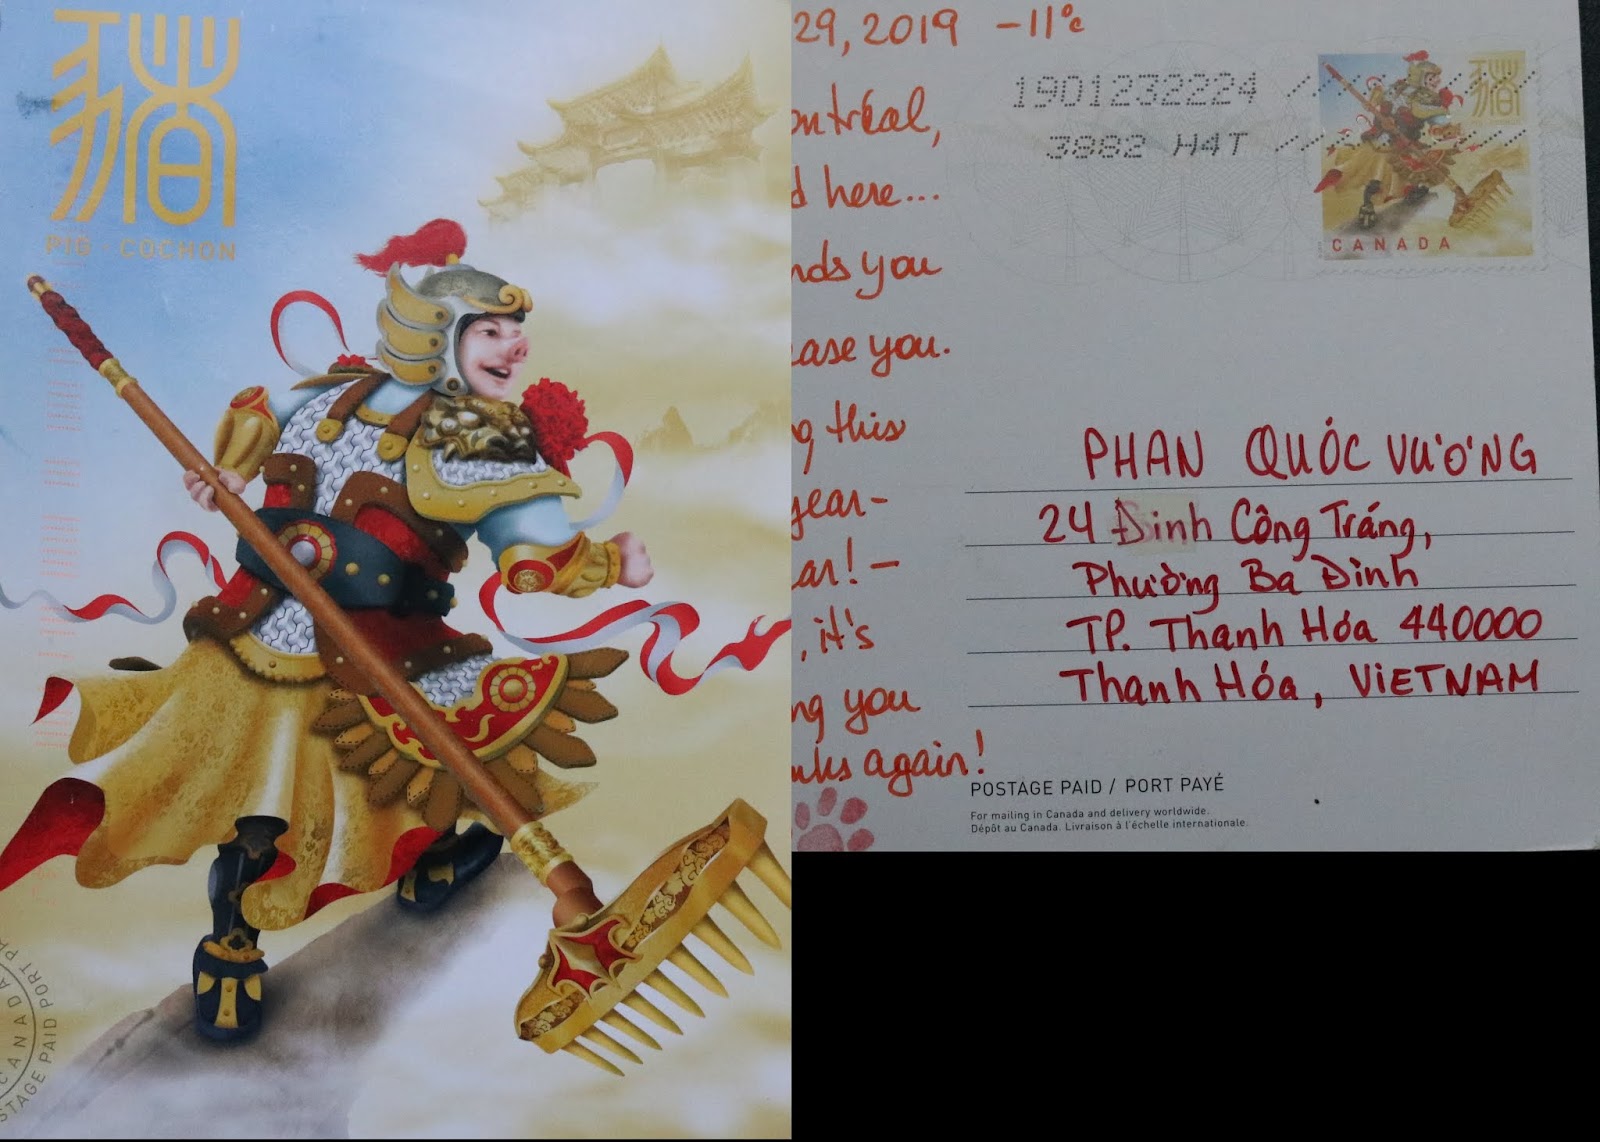 猪
PIG · COCHON
CANADA
POSTAGE PAID PORT
29, 2019 -11°c
ontréal,
d here...
nds you
ease you.
g this
year-
ar! -
, it's
ng you
nks again!
1901232224
3882 H4T
猪
CANADA
PHAN QUỐC VƯƠNG
24 Đinh Công Tráng,
Phường Ba Đình
TP. Thanh Hóa 440000
Thanh Hóa, VIETNAM
POSTAGE PAID / PORT PAYÉ
For mailing in Canada and delivery worldwide.
Dépôt au Canada. Livraison à l'échelle internationale.